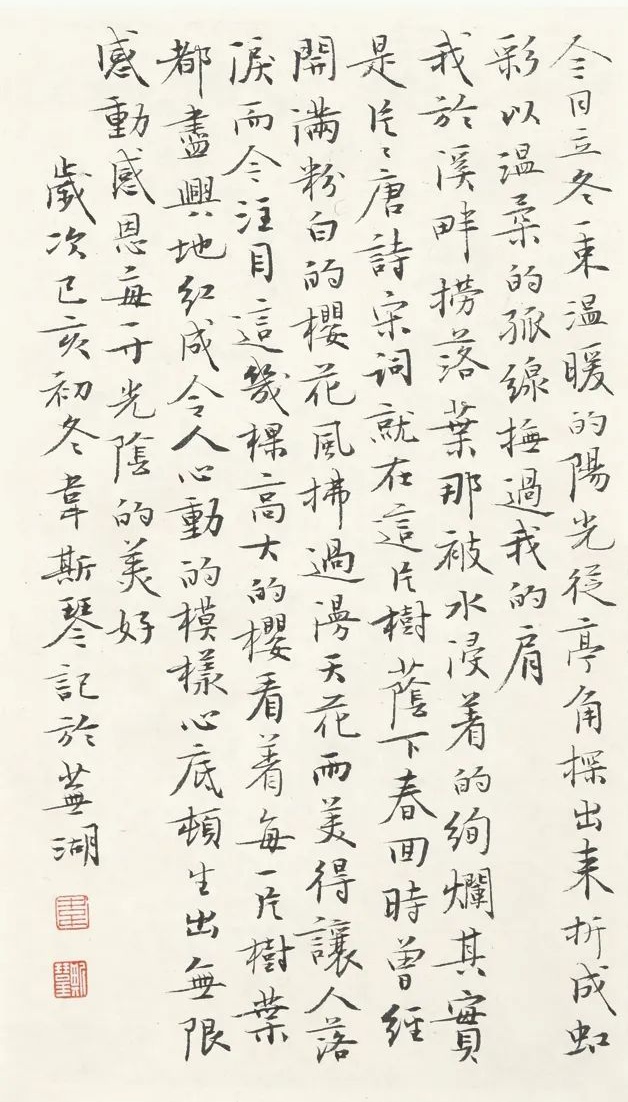 今日立冬一束温暖的陽光從亭角探出来折成虹
彩以温柔的弧線撫過我的肩
我於溪畔撈落葉那被水浸着的絢爛其實
是片〻唐詩宋詞就在這片樹蔭下春回時曾經
開滿粉白的櫻花風拂過漫天花雨美得讓人落
淚而今注目這幾棵高大的櫻看着每一片樹葉
都盡興地紅成令人心動的模樣心底頓生出無限
感動感恩每一寸光陰的美好
歲次己亥初冬韋斯琴記於蕪湖
韋
斯琴